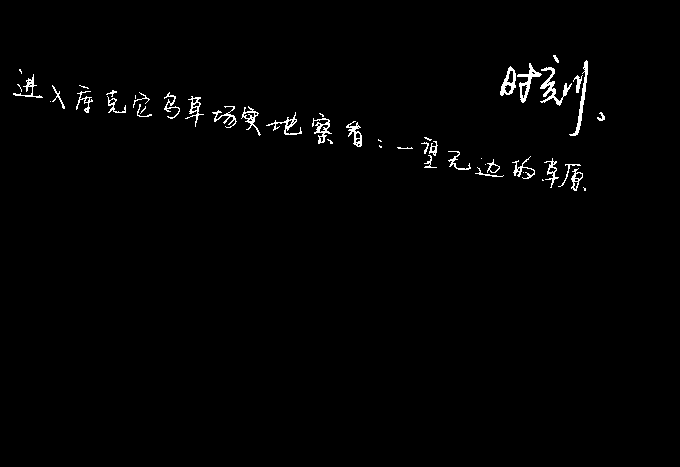 时刻。
进入库克它乌草场实地察看:一望无边的草原